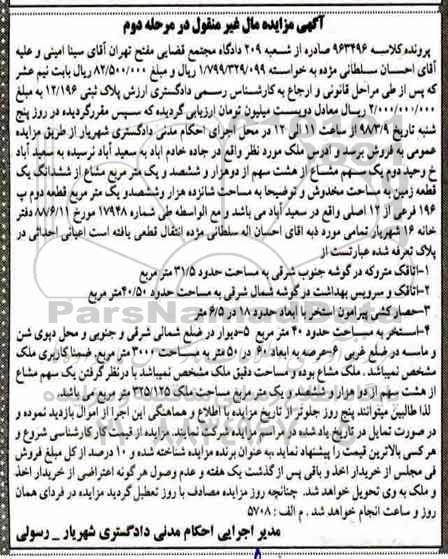 آگهی مزایده مال غیر منقول در مرحله دوم
پرونده کلاسه ۹۶۳۴۹۶ صادره از شعبه ۲۰۹ دادگاه مجتمع قضایی مفتح تهران آقای سینا امینی و علیه
آقای احسان سلطانی مژده به خواسته ۱/۷۹۹/۳۲۹/۰۹۹ ریال و مبلغ ۸۲/۵۰۰/۰۰۰ ریال بابت نیم عشر
که پس از طی مراحل قانونی و ارجاع به کارشناس رسمی دادگستری ارزش پلاک ثبتی ۱۲/۱۹۶ به مبلغ
۲/۰۰۰/۰۰۰/۰۰۰ ریال معادل دویست میلیون تومان ارزیابی گردیده که سپس مقرر گردیده در روز پنج
شنبه تاریخ ۹۸/۳/۹ از ساعت ۱۱ الی ۱۲ در محل اجرای احکام مدنی دادگستری شهریار از طریق مزایده
عمومی به فروش برسد و آدرس ملک مورد نظر واقع در جاده خادم اباد به سعید آباد نرسیده به سعید آباد
خ وحید دوم یک سهم مشاع از هشت سهم از دوهزار و ششصد و یک متر مربع مشاع از ششدانگ یک
قطعه زمین به مساحت مخدوش و توضیحا به مساحت شانزده هزار وششصد و یک متر مربع قطعه دوم پ
۱۹۶ فرعی از ۱۲ اصلی واقع در سعید آباد می باشد و مع الواسطه طی شماره ۱۷۹۴۸ مورخ ۸۸/۶/۱۱ دفتر
خانه ۱۶ شهریار تمامی مورد ذبه اقای احسان اله سلطانی مژده انتقال قطعی یافته است اعیانی احداثی در
پلاک تعرفه شده عبارتست از
۱-اتاقک متروکه در گوشه جنوب شرقی به مساحت حدود ۳۱/۵ متر مربع
۲-اتاقک و سرویس بهداشت در گوشه شمال شرقی به مساحت حدود ۴۰/۵۰متر مربع
۳-حصار کشی پیرامون استخر با ابعاد حدود ۱۸ در ۶/۵ متر
۴-استخر به مساحت حدود ۴۰ متر مربع ۵-دیوار در ضلع شمالی شرقی و جنوبی و محل دپوی شن
و ماسه در ضلع غربی ۶-عرصه به ابعاد ۶۰ در ۵۰ متر به مساحت ۳۰۰۰ متر مربع. ضمنا کاربری ملک
مشخص نمیباشد . ملک مشاع بوده و مساحت دقیق ملک مشخص نمیباشد با درنظر گرفتن یک سهم مشاع
از هشت سهم از دو هزار و ششصد و یک متر مربع مساحت ملک ۳۲۵/۱۲۵ متر مربع می باشد
لذا طالبین میتوانند پنج روز جلوتر از تاریخ مزایده با اطلاع و هماهنگی این اجرا از اموال بازدید نموده و
در صورت تمایل در تاریخ یاد شده در مراسم مزایده شرکت نمایند. مزایده از قیمت کارشناسی شروع و
هر کسی بالاترین قیمت را پیشنهاد نماید ،به عنوان برنده مزایده شناخته شده و ۱۰ درصد از کل مبلغ فروش
فی مجلس از خریدار اخذ و باقی پس از گذشت یک هفته و عدم وصول هر گونه اعتراضی از خریدار اخذ
و ملک به وی تحویل خواهد شد. چنانچه روز مزایده مصادف با روز تعطیل گردید مزایده در فردای همان
روز و ساعت انجام خواهد شد . م الف : ۵۷۰۸
مدیر اجرایی احکام مدنی دادگستری شهریار _ رسولی